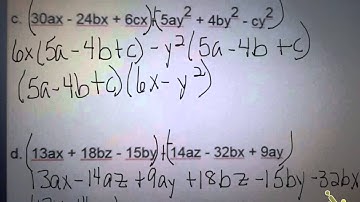 c. (30ax - 24bx + 6cx)+(-5ay² + 4by² - cy²)
6x(5a-4b+c) - y²(5a-4b+c)
(5a-4b+c)(6x-y²)
d. (13ax + 18bz - 15by)+(-14az - 32bx + 9ay)
13ax-14az+9ay+18bz-15by-32bx